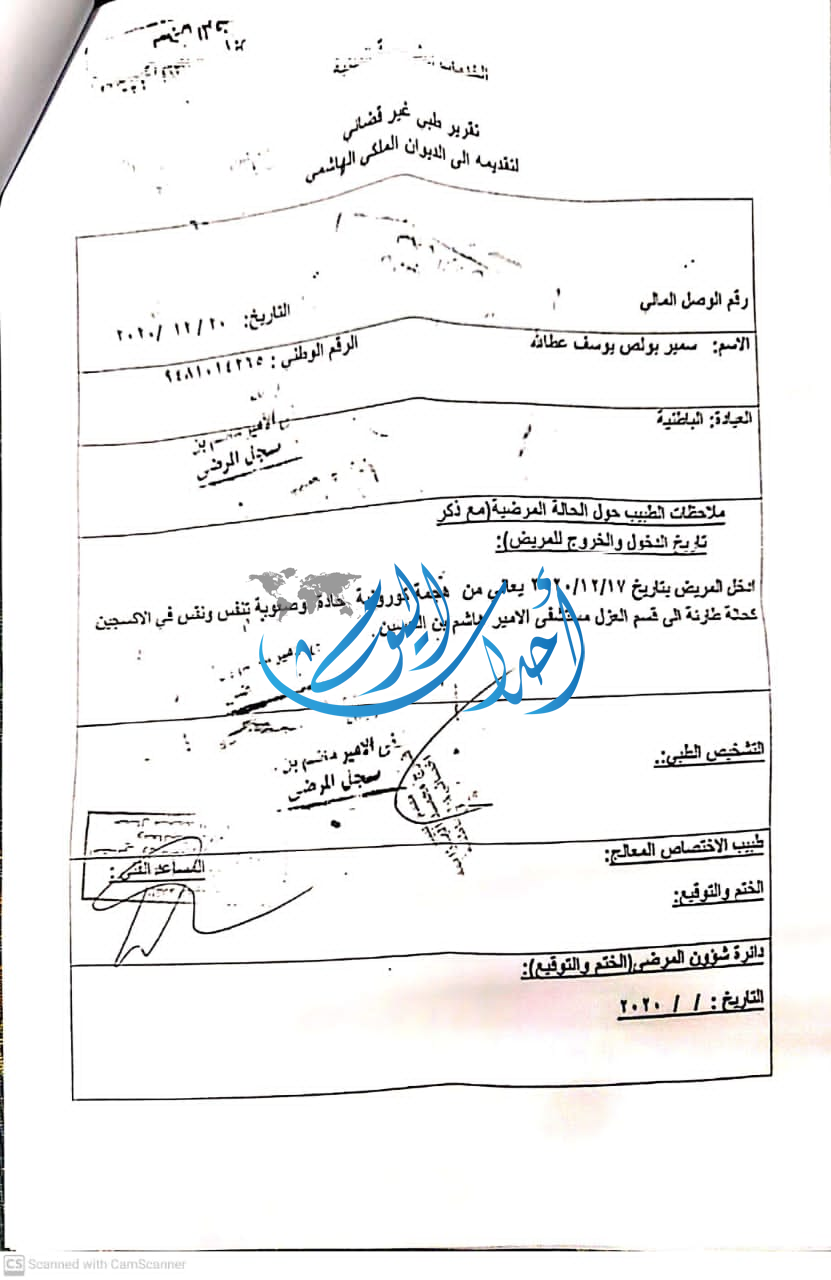 تقرير طبي غير قضائي
لتقديمه الى الديوان الملكي الهاشمي
رقم الوصل المالي
التاريخ: ٢٠ / ١٢ / ٢٠٢٠
الاسم: سمير بولص يوسف عطالله
الرقم الوطني : ٩٤٨١٠١٤٢٦٥
العيادة: الباطنية
الامير هاشم بن
سجل المرضى
ملاحظات الطبيب حول الحالة المرضية(مع ذكر
تاريخ الدخول والخروج للمريض):
ادخل المريض بتاريخ ٢٠٢٠/١٢/١٧ يعاني من هجمة كورونية حادة وصعوبة تنفس ونقس في الاكسجين
كحالة طارئة الى قسم العزل مستشفى الامير هاشم بن الحسين .
أحداث اليوم
التشخيص الطبي:.
الامير هاشم بن
سجل المرضى
طبيب الاختصاص المعالج:
المساعد الفني :
الختم والتوقيع:
دائرة شؤون المرضى(الختم والتوقيع):
التاريخ : / / ٢٠٢٠
CS Scanned with CamScanner